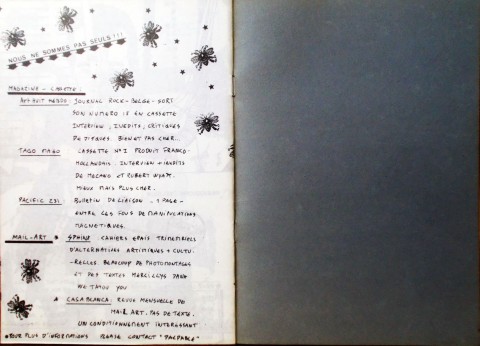 NOUS NE SOMMES PAS SEULS!!!
MAGAZINE - CASSETTE:
JOURNAL ROCK-BELGE-SORT
SON NUMERO 18 EN CASSETTE
INTERVIEW, INEDITS, CRITIQUES
DE DISQUES. BIEN ET PAS CHER...
TAGO MAGO CASSETTE N°1 PRODUIT FRANCO-
HOLLANDAIS. INTERVIEW + INEDITS
DE ET ROBERT WYATT.
MIEUX MAIS PLUS CHER.
PACIFIC 231. BULLETIN DE LIAISON - 1 PAGE-
ENTRE LES FOUS DE MANIPULATIONS
MAGNETIQUES.
MAIL-ART * SPHINX CAHIERS EPAIS TRIMESTRIELS
D'ALTERNATIVES ARTISTIQUES + CULTU-
-RELLES BEAUCOUP DE PHOTOMONTAGES
ET DES TEXTES DANS
YOU
* CASABLANCA: REVUE MENSUELLE DE
MAIL ART. PAS DE TEXTE.
UN CONDITIONNEMENT INTERESSANT
*POUR PLUS D'INFORMATIONS PLEASE CONTACT "PACPABLE"